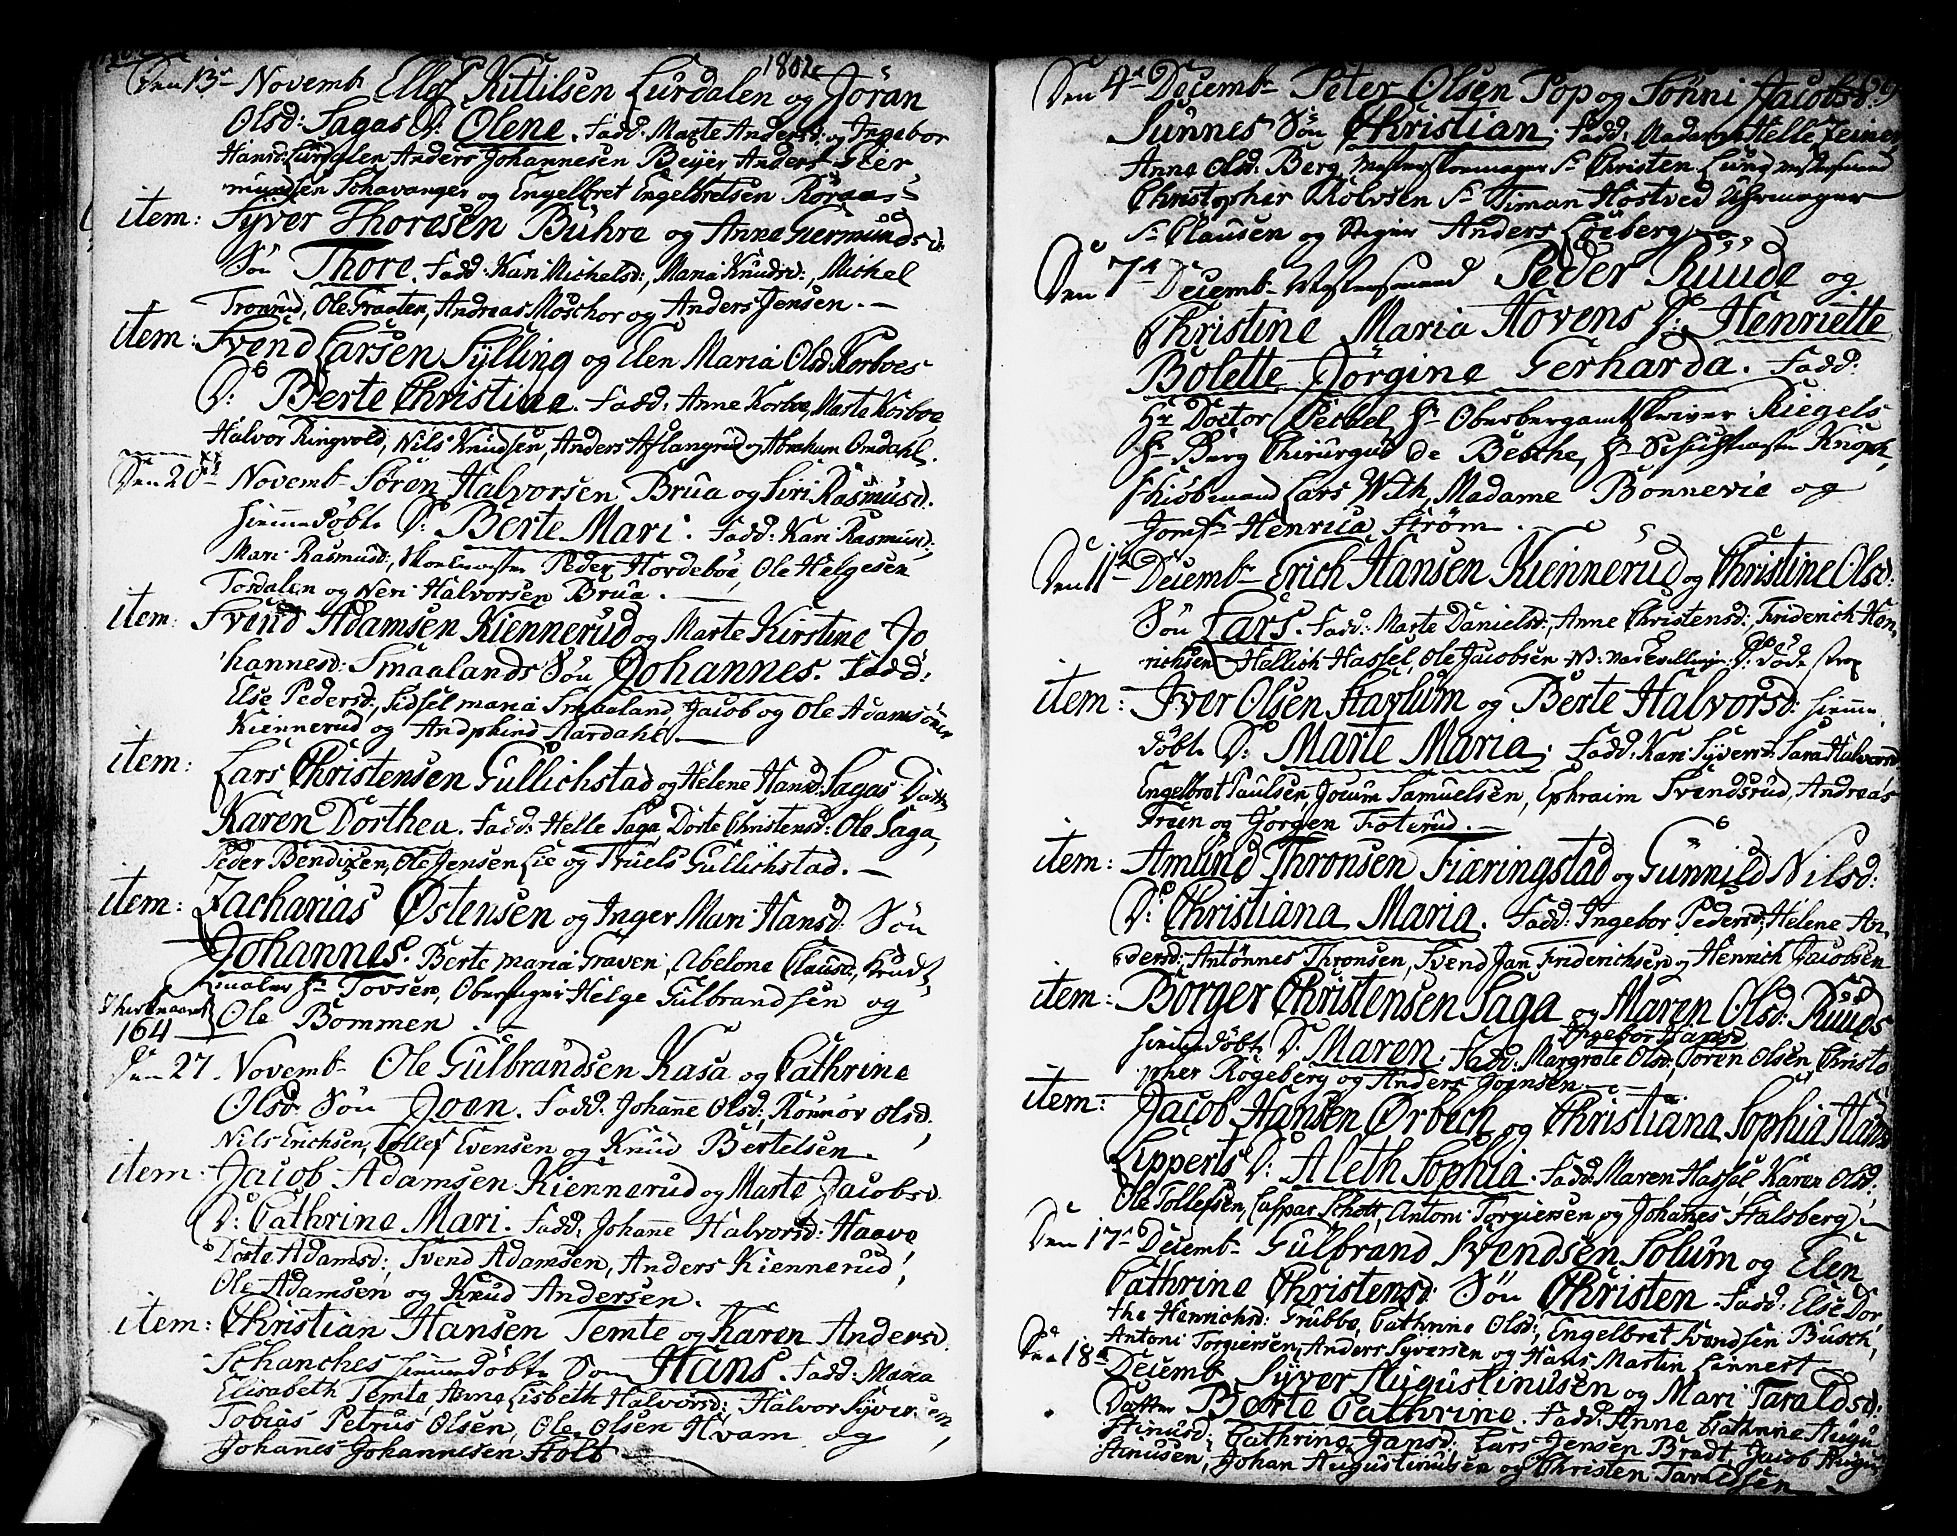 1802
Den 13de Novemb Ellef Kittilsen Lürdalen og Jöran
Olsd: Sagas D: Olene. Fadd: Marte Andersd: og Ingebor
Hansd: Lürdalen Anders Johannesen Beyer Anders
Schavanger og Engelbret Engelbretsen
item: Syver Thoresen Bühre og Anne Giermunds
Sön Thore. Fadd: Kari Michelsd:, Maria Knudsd:, Michel
Tronrud, Ole Graaten, Andreas Moschor og Anders Jensen. —
item: Svend Larsen Sylling og Elen Maria Olsd: Korboes
D: Berte Christine. Fadd: Anne Korboe, Marte Korboe
Halvor Ringvold, Nils Knudsen, Anders Aslangrud og Abraham Omdahl.
Den 20de Novemb Sören Halvorsen Brua og Siri Rasmusd:
hiemmedöbt D: Berte Mari. Fadd: Kari Rasmusd:,
Mari Rasmusd:, Peder Hordeboe, Ole Helgesen
Tosdalen og Neri Halvorsen Brua. —
item: Svend Adamsen Kiennerud og Marte Kirstine Jo
hannesd: Smaalands Sön Johannes. Fadd:
Else Pedersd:, Sidsel maria Smaaland, Jacob og Ole Adamsönner
Kiennerud og Andphind Hardahl. —
item: Lars Christensen Gullichstad og Helene Hansd: Sagas Datter
Karen Dorthea. Fadd: Helle Saga, Dorte Christensd: Ole Saga,
Peder Bendixen, Ole Jensen Lie og Truels Gullichstad. —
item: Zacharias Østensen og Inger Mari Hansd: Sön
Johannes. Berte maria Graven, Abelone Clausd:,
Hr Tovsen, Oberstiger Helge Gulbrandsen og
164 Ole Bommen. —
Den 27 Novemb Ole Gulbrandsen Kasa og Cathrine
Olsd Sön Joen. Fadd: Johane Olsd:, Rönnöv Olsd:,
Nils Erichsen, Tollef Evensen og Knud Bertelsen
item: Jacob Adamsen Kiennerud og Marte Jacobsd
D: Cathrine Mari. Fadd: Johane Halvorsd: Haave
Dorte Adamsd:, Svend Adamsen, Anders Kiennerud,
Ole Adamsen og Knud Andersen.
item: Christian Hansen Temte og Karen Andersd.
Schanches hiemmedöbt Sön Hans. Fadd: Maria
Elisabeth Temte, Anne Lisbeth Halvorsd: Halvor Syversen,
Tobias Petrus Olsen, Ole Olsen Hvam og
Johanes Johannesen Holt —
Den 4de Decemb Peter Olsen Pop og Sönni Jacobsd:
Sunnes Sön Christian. Fadd: Madam Helle Zeiner
Anne Olsd: Berg Hr Christen Lund
Christopher Rolvsen Hr Timan Hostved Uhrmager
Hr Clausen og Anders Löeberg
Den 7de Decemb Peder Ruude og
Christine Maria Hovens D: Henriette
Bolette Jörgine Gerharda. Fadd:
Hr Doctor Peckel, Hr Oberbergamtskriver Riegels
Hr Berg Chirurgus de Besche, Hr Knoph,
Kiöbmand Lars With, Madame Bonnevie og
Jomfr Henrica Ström.
Den 11te Decemb Erich Hansen Kiennerud og Christine Olsd:
Sön Lars. Fadd: Marte Danielsd:, Anne Christensd:, Friderich Hen,
richsen Hallich Hassel, Ole Jacobsen NB var Tvillinger D: Döde strax
item: Iver Olsen Havlum og Berte Halvorsd: hiemme,
döbt D: Marte Maria. Fadd: Kari Syversd: Sara Halvorsd
Engelbret Paulsen, Jocum Samuelsen, Ephraim Svendsrud, Andreas
Green og Jörgen Foterud. —
item: Amund Thronsen Fiæringstad og Gunnild Nilsd:
D: Christiana Maria. Fadd: Ingebor Pedersd:, Helene An,
dersd: Antönnes Thronsen, Svend Jan Friderichsen og Henrich Jacobsen
item: Börger Christensen Saga og Maren Olsd: Ruuds
Ingebor Hansd
hiemmedöbt D: Maren. Fadd: Margrete Olsd:, Sören Olsen, Christo
pher Rogeberg og Anders Joensen. —
item: Jacob Hansen Ørbech og Christiana Sophia Hans
Lipperts D: Aleth Sophia. Fadd: Maren Hassel, Karen Olsd:,
Ole Tollefsen, Caspar Schott, Antoni Torgiersen og Johanes Halsberg —
Den 17de Decemb Gulbrand Svendsen Solum og Elen
Cathrine Christensd: Sön Christen. Fadd: Else Dor,
the Henrichsd: Grubbe, Cathrine Olsd:, Engelbret Svendsen Busch,
Antoni Torgiersen, Anders Syversen og Hans Martin Linnert —
Den 18de Decemb Syver Augustinusen og Mari Taraldsd:
Datter Berte Cathrine. Fadd: Anne Cathrine Augu
stinusd: Cathrine Jansd:, Lars Jensen Bradt, Jacob Augu
stinusen, Johan Augustinusen og Christen Taraldsen —